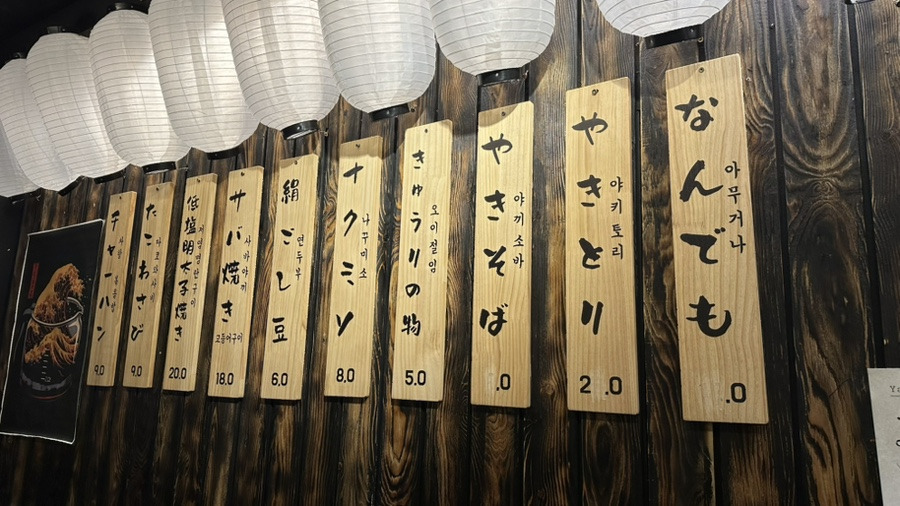 なんでも
아무거나
.0
やきとり
야키토리
2 .0
やきそば
야끼소바
.0
きゅうりの物
오이절임
5.0
ナクミソ
나꾸미소
8.0
絹ごし豆
연두부
6.0
サバ焼き
사바야끼
고등어구이
18.0
低塩明太子焼き
저염명란구이
20.0
たこわさび
타코와사비
9.0
チャーハン
볶음밥
9.0